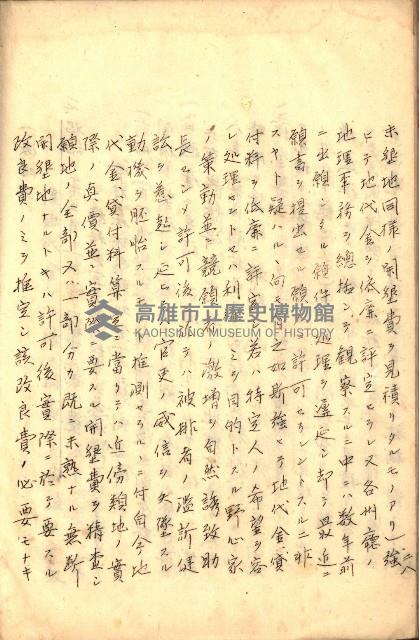 未墾地同様ノ開墾費ヲ見積リタルモノアリ」強
ヒテ地代金ヲ低廉ニ評定セラレ又各州廳ノ
地理事務ヲ總括シ観察スルニ中ニハ数年前
ニ出願シタル願件ノ処理ヲ遅延シ却テ最近ニ
願書ヲ提出セル願ヲ許可セラレントスルニ非
スヤト疑ハルヽ向有之如斯強ヒテ地代金、貸
付料ヲ低廉ニ評定シ若ハ特定人ノ希望ヲ容
レ処理セントセハ利ノミヲ目的トスル野心家
ノ策動並ニ競願ノ激増ヲ自然誘致助
長セシメ許可後ニ於テハ被排者ノ濫訴健
訟ヲ惹起シ延ヒテ官吏ノ威信ヲ失墜スル
動機ヲ胚胎スルモノト推測セラルヽニ付自今地
代金、貸付料算定ニ當リテハ近傍類地ノ實
際ノ真價並ニ實際要スル開墾費ヲ精査シ
願地ノ全部又ハ一部分カ既ニ未熟ナル無断
開墾地ナルトキハ許可後實際ニ於テ要スル
改良費ノミヲ推定シ該改良費ノ必要ナキ
高雄市立歷史博物館
KAOHSIUNG MUSEUM OF HISTORY